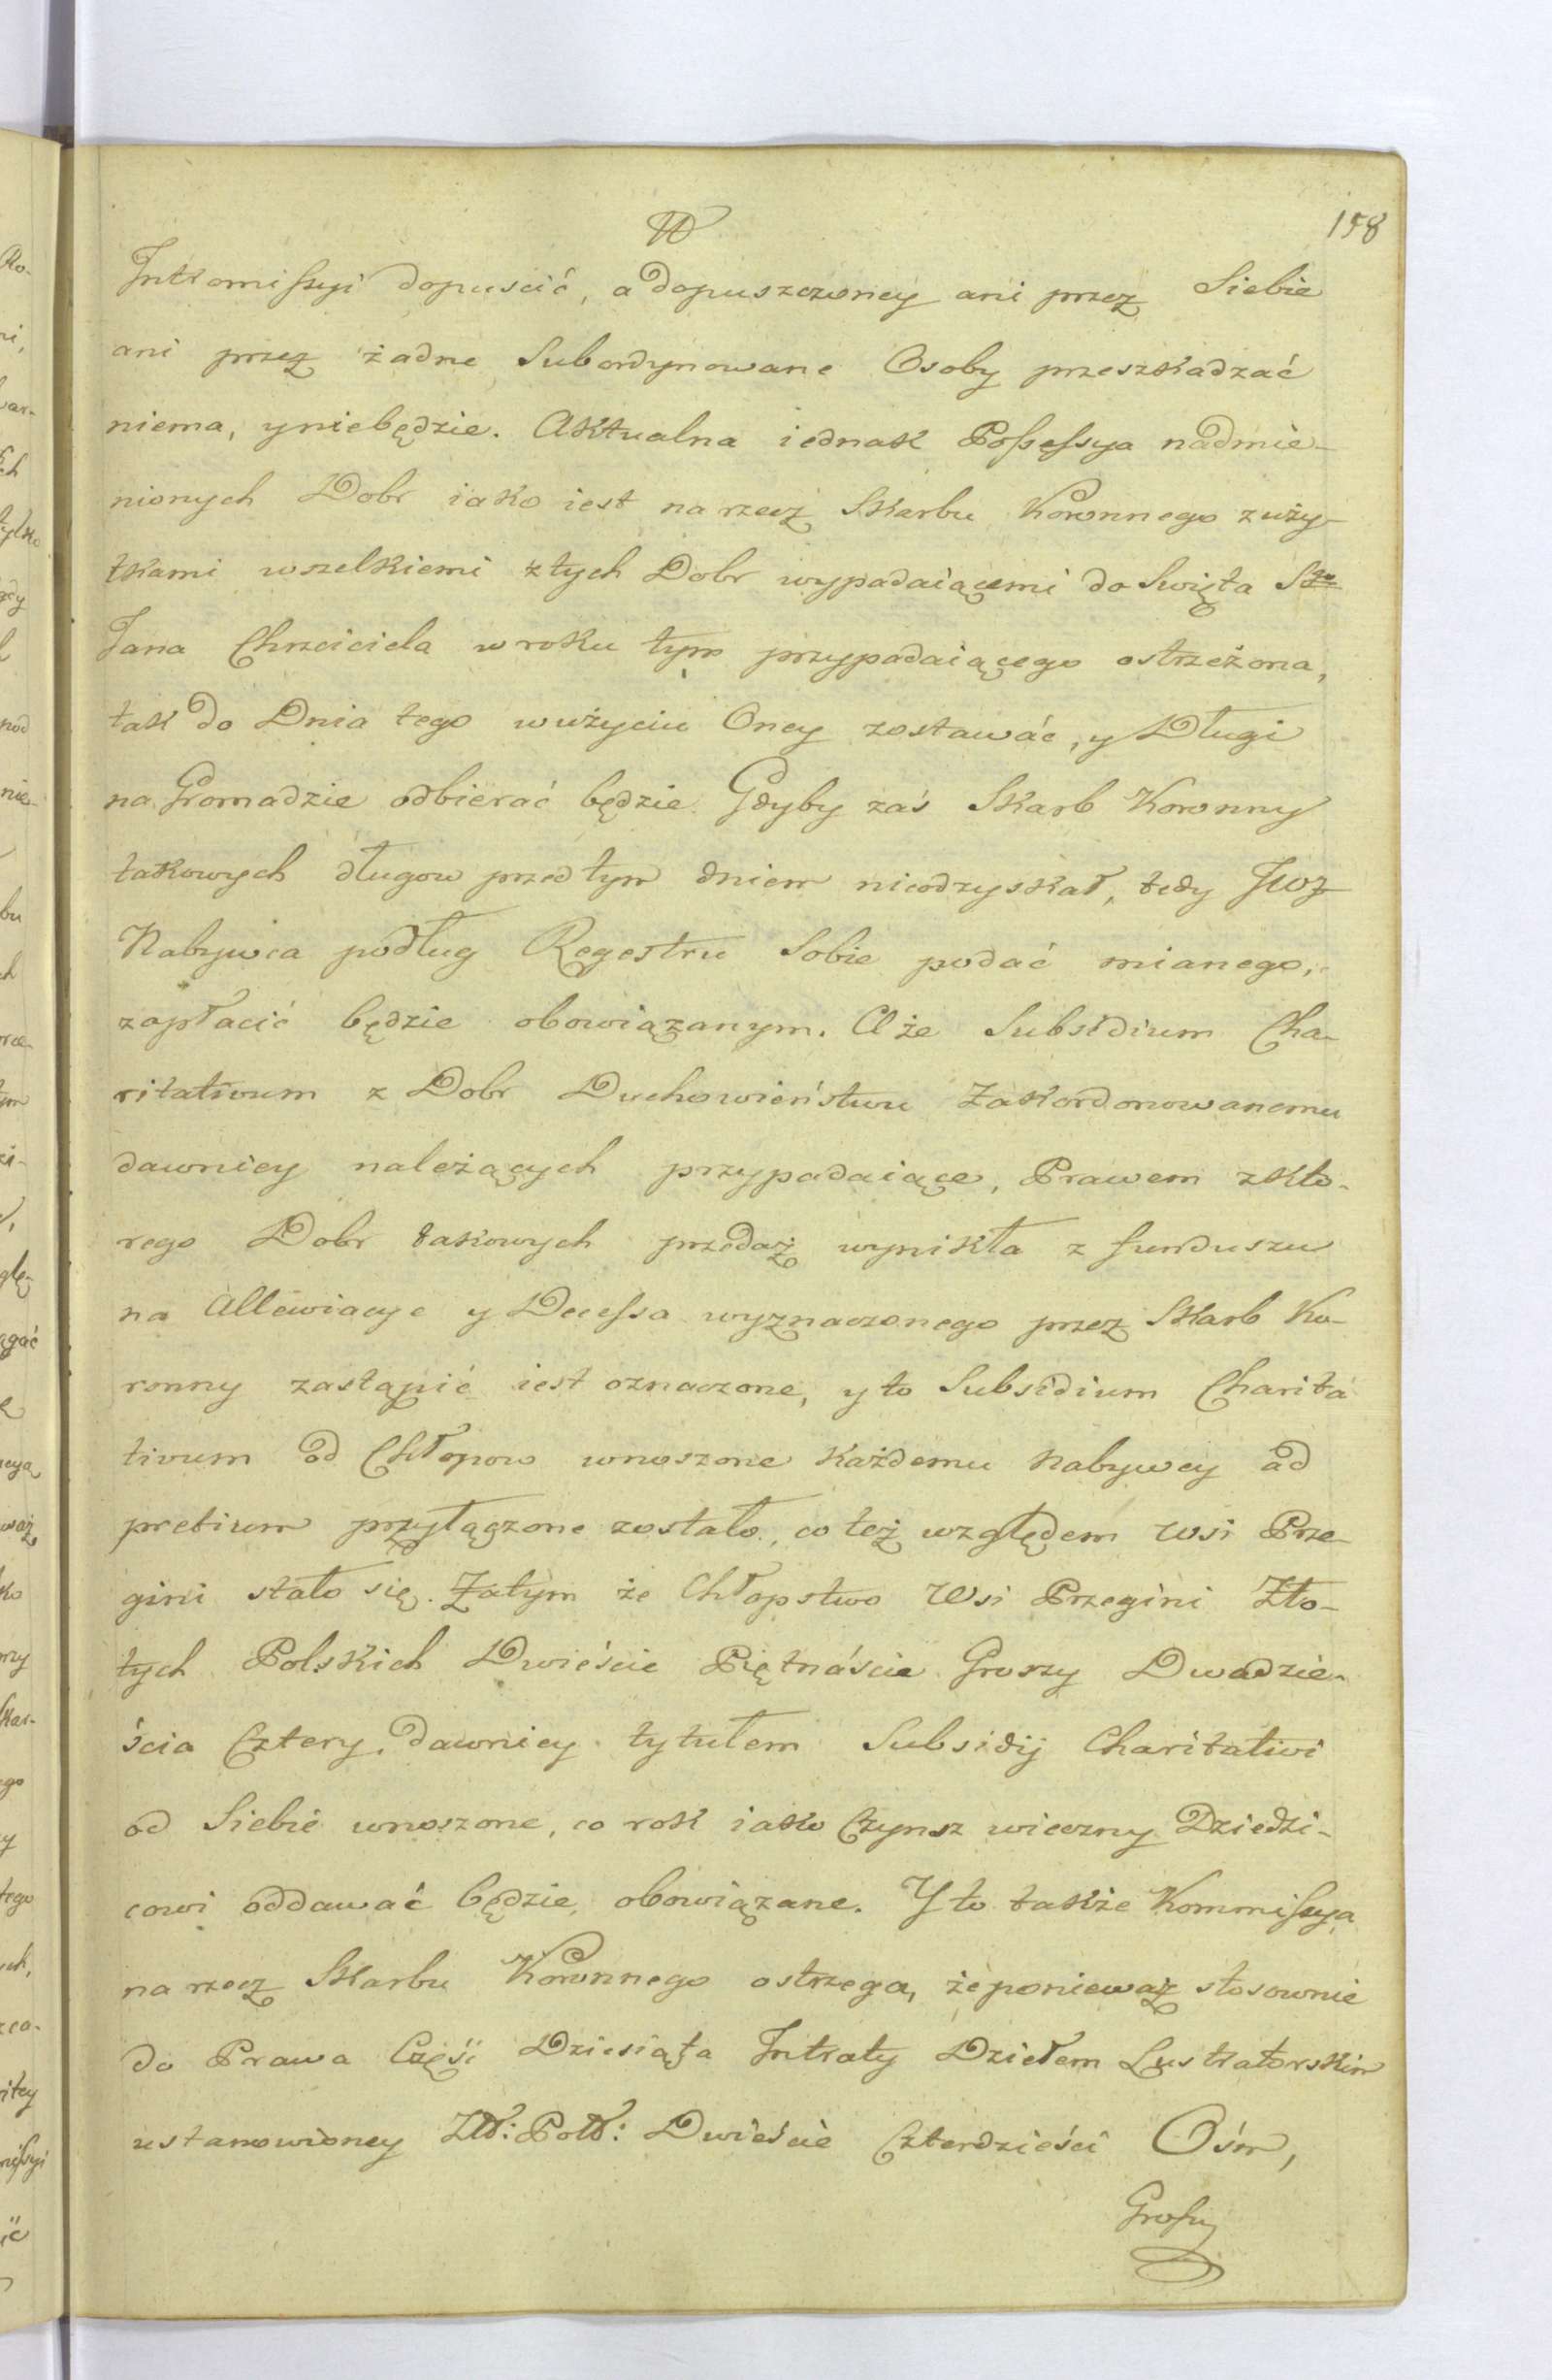 158
Intromissyi dopuscić, a dopuszczoney ani przez Siebie
ani przez żadne Subordynowane Osoby przeszkadzać
niema, y niebędzie. Aktualna iednak Possessya nadmie-
nionych Dobr iako iest na rzecz Skarbu Koronnego z uży-
tkami wszelkiemi z tych Dobr wypadaiącemi do Swięta Sgo
Jana Chrzciciela w roku tym przypadaiącego ostrzeżona,
tak do Dnia tego w użyciu Oney zostawać, y Długi
na Gromadzie odbierać będzie. Gdyby zaś Skarb Koronny
takowych długow przed tym dniem nieodzyskał, tedy JWoz
Nabywca podług Regestru Sobie podać mianego,
zapłacić będzie obowiązanym. A że Subsidium Cha-
ritativum z Dobr Duchowieństwu Zakordonowanemu
dawniey należących przypadaiące, Prawem z kto-
rego Dobr takowych przedaż wynikła z funduszu
na Allewiacye y Decessa wyznaczonego przez Skarb Ko-
ronny zastąpić iest oznaczone, y to Subsidium Charita
tivum od Chłopow wnoszone każdemu Nabywcy ad
pretium przyłączone zostało, co też względem Wsi Prze-
gini stało się. Zatym że Chłopstwo Wsi Przegini Zło-
tych Polskich Dwieście Piętnaście Groszy Dwadzie-
ścia Cztery, dawniey tytułem Subsidij Charitativi
od Siebie wnoszone, co rok iako Czynsz wieczny Dziedzi-
cowi oddawać będzie obowiązane. Y to także Kommissya
na rzecz Skarbu Koronnego ostrzega, że ponieważ stosownie
do Prawa Część Dziesiąta Intraty Dziełem Lustratorskim
ustanowioney Zł: Pol: Dwieście Czterdzieści Ośm,
Groszy